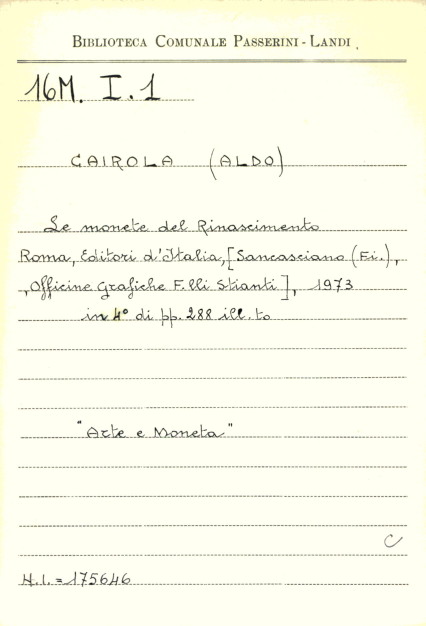 BIBLIOTECA COMUNALE PASSERINI - LANDI
16M. I.1
CAIROLA (ALDO)
Le monete del Rinascimento
Roma, Editori d'Italia, [Sancasciano (Fi.),
, Officine Grafiche F.lli Stianti], 1973
in 4° di pp. 288 ill.to
"Arte e Moneta"
C
N.I. = 175646